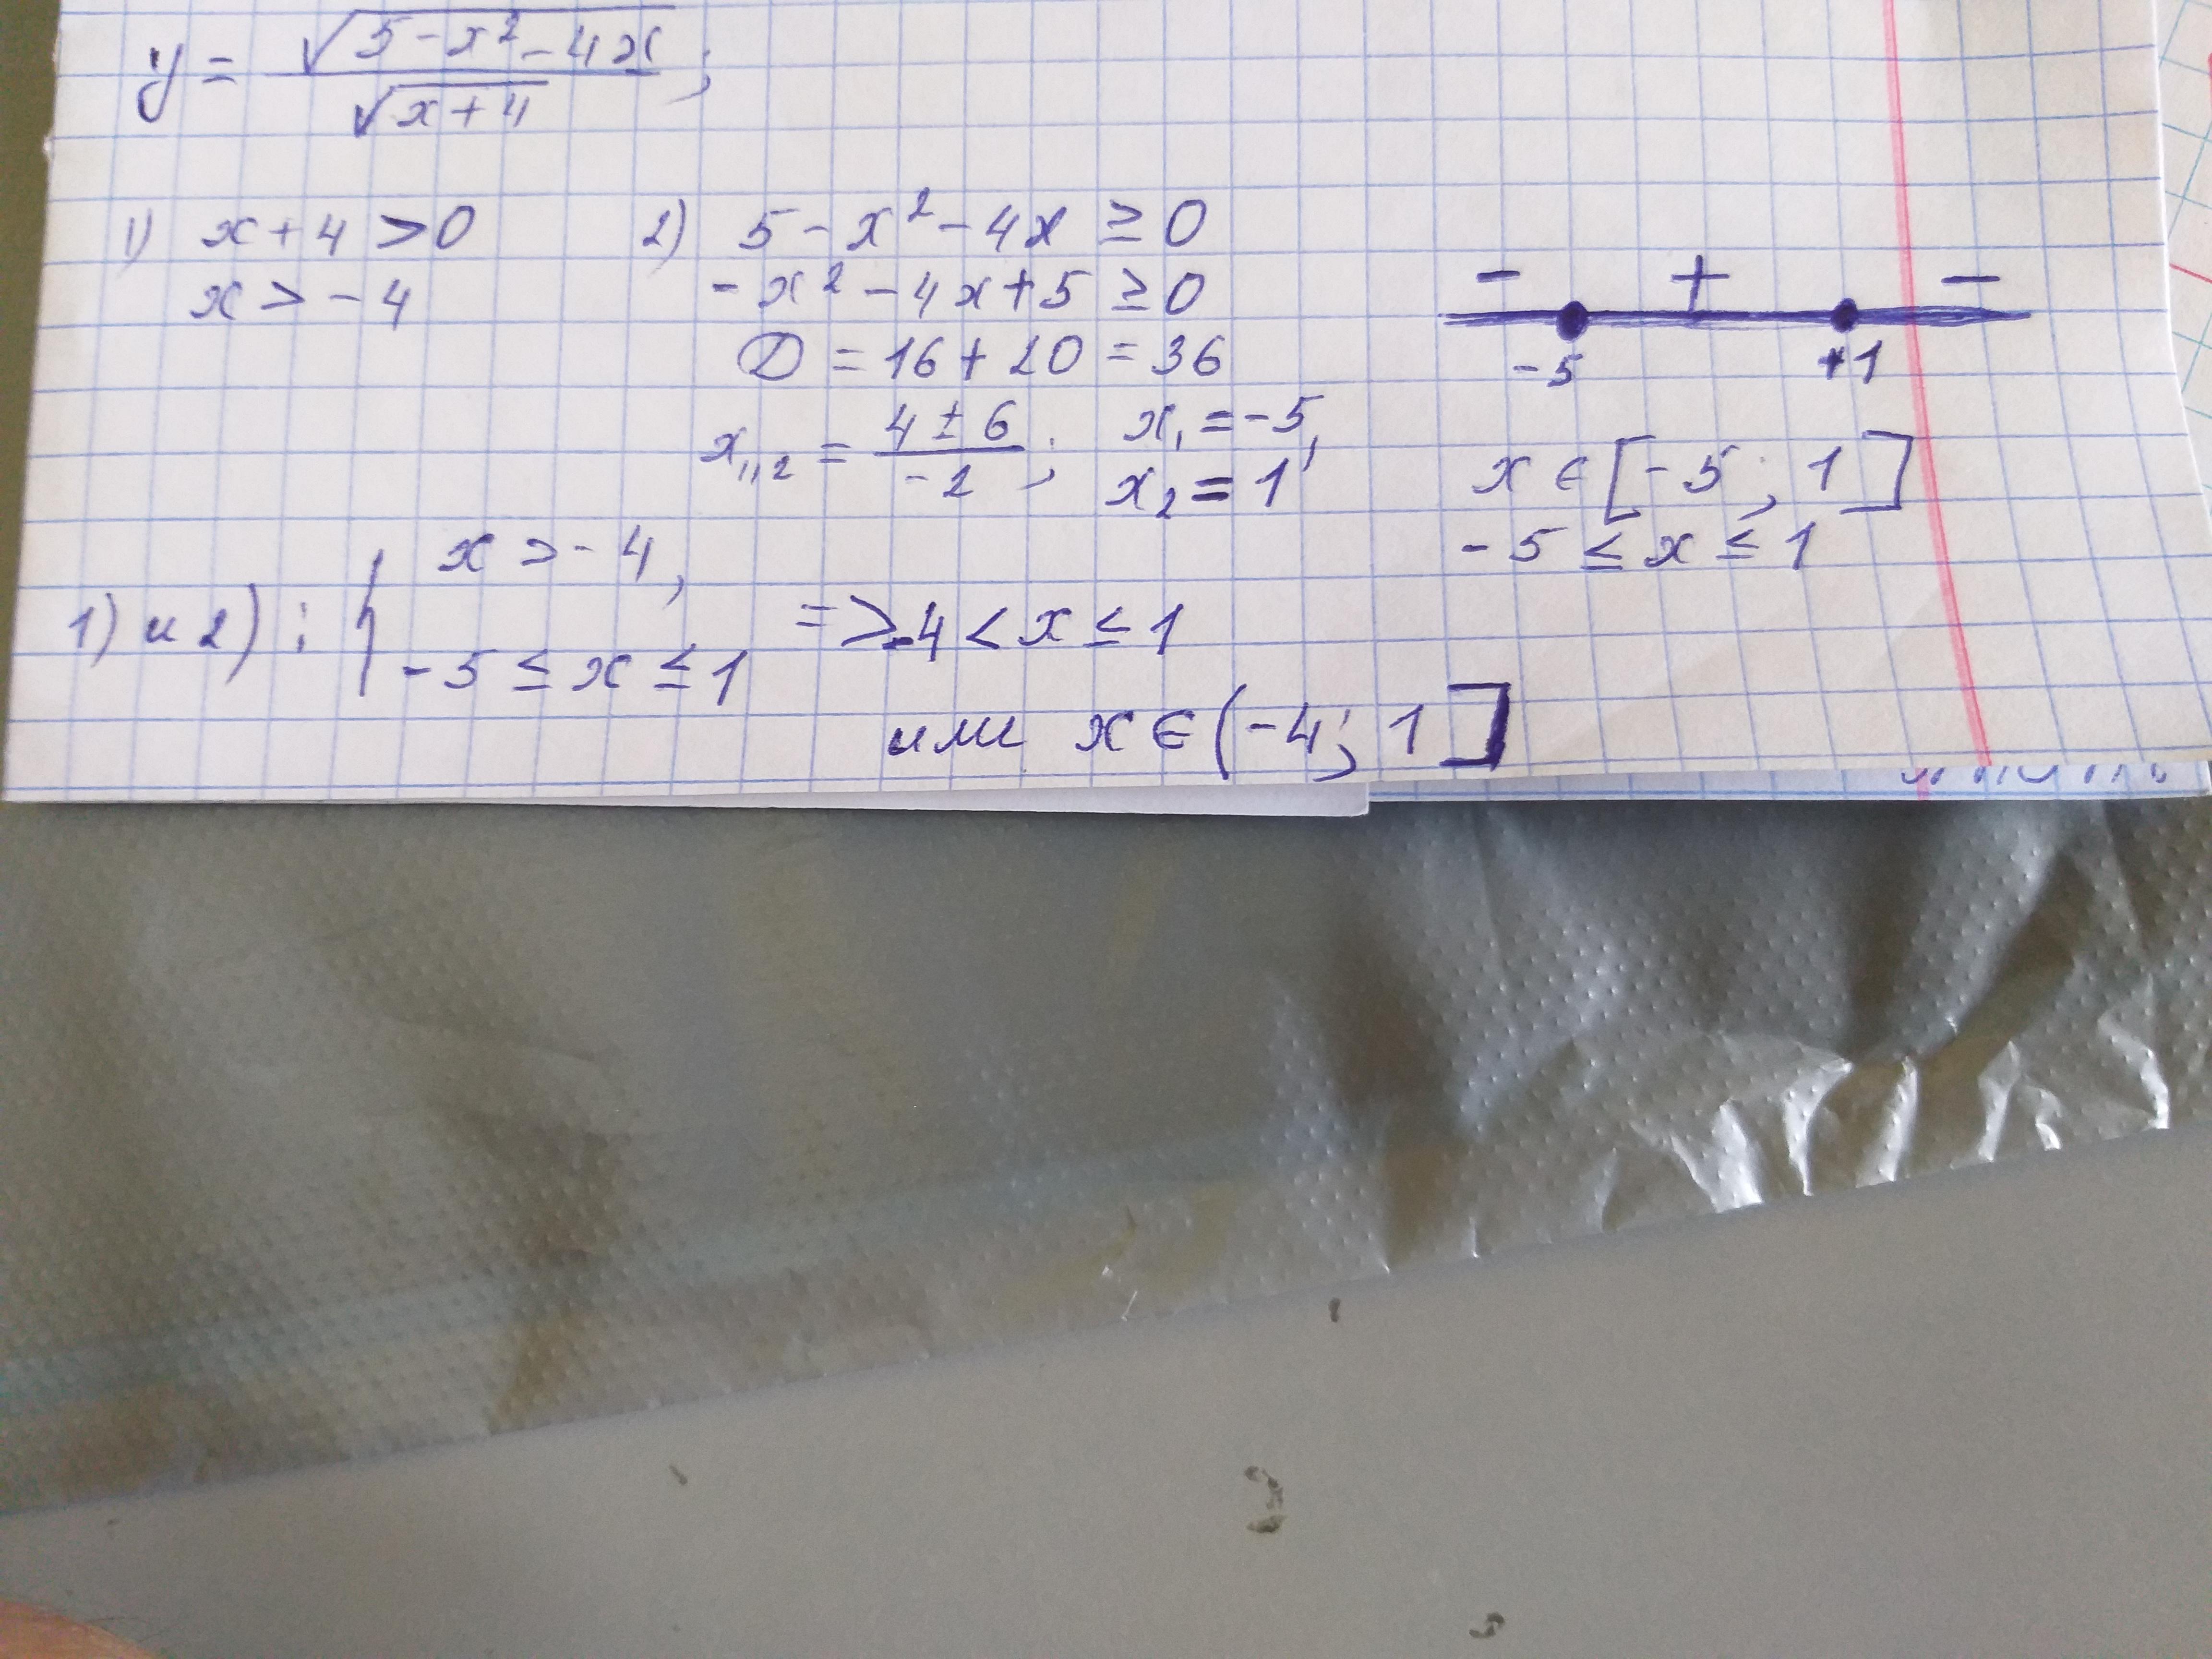 y = √(5-x²-4x) / √(x+4) ;
1) x+4 >0
x > -4
2) 5-x²-4x ≥ 0
-x²-4x+5 ≥0
D = 16+20 = 36
x₁,₂ = (4 ± 6) / -2 ; x₁ = -5,
x₂ = 1
- + -
-5 +1
x ∈ [-5 ; 1]
-5 ≤ x ≤ 1
1) и 2) : { x > -4,
-5 ≤ x ≤ 1
=> -4 < x ≤ 1
или x ∈ (-4; 1]